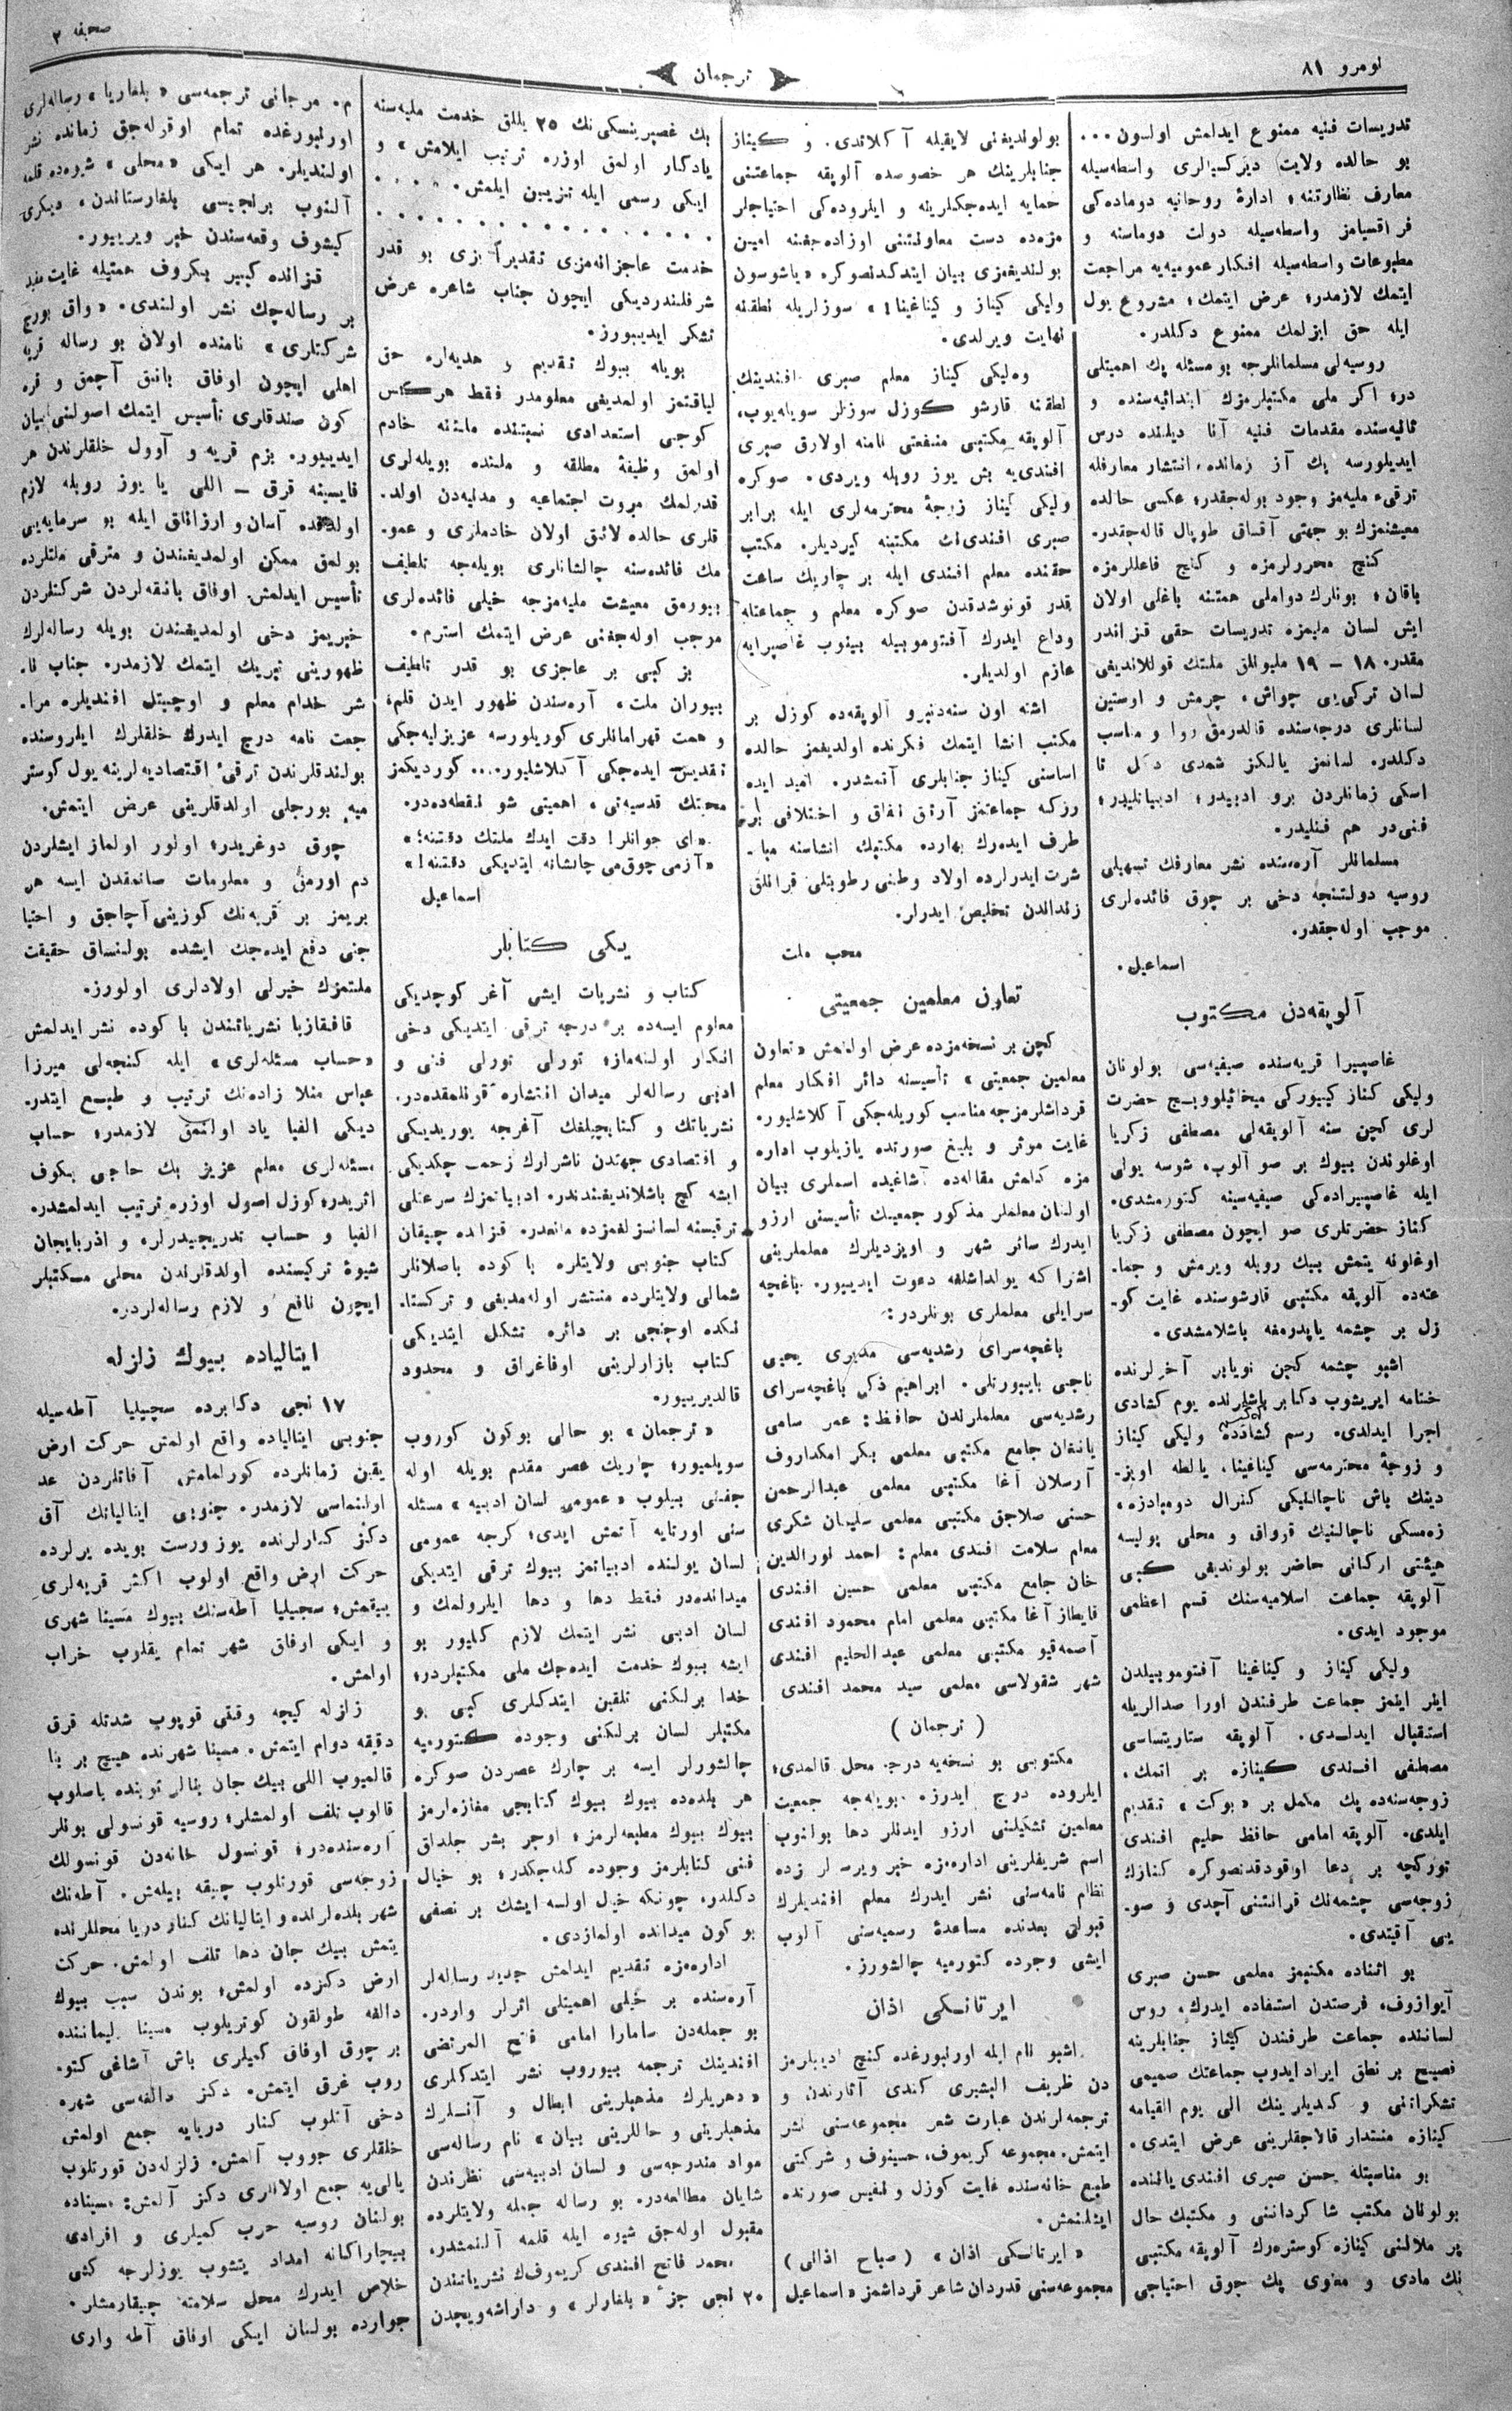 نومرو ٨١
ترجمان
صحيفه ٢
تدريسات فنيه ممنوع ايدلمش اولسون...
بو حالده ولايت ديركسيالری واسطه‌سيله
معارف نظارتنه؛ ادارۀ روحانيه دوماده‌كی
فراقسيامز واسطه‌سيله دولت دوماسنه و
مطبوعات واسطه‌سيله افكار عموميه‌يه مراجعت
ايتمك لازمدر؛ عرض ايتمك؛ مشروع يول
ايله حق ايزلمك ممنوع دكلدر.
روسيه‌لی مسلمانلرجه بو مسئله پك اهميتلی
در؛ اكر ملی مكتبلرمزك ابتدائيه‌سنده و
ثانيه‌سنده مقدمات فنيه آنا ديلنده درس
ايديلورسه پك آز زمانده، انتشار معارفله
ترقیء مليه‌مز وجود بوله‌جقدر؛ عكسی حالده
معيشتمزك بو جهتی آقساق طوپال قاله‌جقدر.
كنج محررلرمزه و كنج فاعللرمزه
باقان؛ بونلرك دواملی همتنه باغلی اولان
ايش لسان مليمزه تدريسات حقی قزاندر
مقدر. ١٨ – ١٩ مليونلق ملتك قوللانديغی
لسان تركی‌يی چواش، چرمش و اوستين
لسانلری درجه‌سنده قالدرمق روا و مناسب
دكلدر. لسانمز يالكز شمدی دكل تا
اسكی زمانلردن برو ادبيدر؛ ادبياتليدر؛
فنی‌در هم فنليدر.
مسلمانلر آره‌سنده نشر معارفك تسهيلی
روسيه دولتنجه دخی بر چوق فائده‌لری
موجب اوله‌جقدر.
اسماعيل.
آلوپقه‌دن مكتوب
غاصپيرا قريه‌سنده صيفيه‌سی بولونان
وليكی كناز كيبوركی ميخائيلوويچ حضرت
لری كچن سنه آلوپقه‌لی مصطفی زكريا
اوغلوندن بيوك بر صو آلوب، شوسه يولی
ايله غاصپيراده‌كی صيفيه‌سينه كتورمشدی.
كناز حضرتلری صو ايچون مصطفی زكريا
اوغلونه يتمش بيك روبله ويرمش و جما-
عته‌ده آلوپقه مكتبی قارشوسنده غايت كو-
زل بر چشمه ياپدرمغه باشلامشدی.
اشبو چشمه كچن نويابر آخرلرنده
ختامه ايريشوب دكابر باشلرنده يوم كشادی
اجرا ايدلدی. رسم كشادده وليكی كيناز
و زوجۀ محترمه‌سی كيناغينا، يالطه اويز-
دينك باش ناچالنيكی كنرال دومبادزه،
زه‌مسكی ناچالنيك قرواق و محلی پوليسه
هيئتی اركانی حاضر بولونديغی كبی
آلوپقه جماعت اسلاميه‌سنك قسم اعظمی
موجود ايدی.
وليكی كيناز و كيناغينا آفتوموبيلدن
اينر اينمز جماعت طرفندن اورا صدالريله
استقبال ايدلدی. آلوپقه ستاريتساسی
مصطفی افندی كينازه بر اتمك،
زوجه‌سنه‌ده پك مكمل بر «بوكت» تقديم
ايلدی. آلوپقه امامی حافظ حليم افندی
توركچه بر دعا اوقودقدنصوكره كنازك
زوجه‌سی چشمه‌نك قرانتنی آچدی و صو-
يی آقيتدی.
بو اثناده مكتبمز معلمی حسن صبری
آيوازوف، فرصتدن استفاده ايدرك، روس
لساننده جماعت طرفندن كيناز جنابلرينه
فصيح بر نطق ايراد ايدوب جماعتك صميمی
تشكراتنی و كنديلرينك الی يوم القيامه
كينازه منتدار قالاجقلرينی عرض ايتدی.
بو مناسبتله حسن صبری افندی يالننده
بولونان مكتب شاكرداننی و مكتبك حال
پر ملالنی كينازه كوستره‌رك آلوپقه مكتبی
نك مادی و معنوی پك چوق احتياجی
بولولديغنی لايقيله آكلاتدی. و كيناز
جنابلرينك هر خصوصده آلوپقه جماعتنی
حمايه ايده‌جكلرينه و ايلروده‌كی احتياجلر
مزه‌ده دست معاونتنی اوزاده‌جغنه امين
بولنديغمزی بيان ايتدكدنصوكره «ياشوسون
وليكی كيناز و كيناغينا!» سوزلريله نطقنه
نهايت ويرلدی.
وه‌ليكی كيناز معلم صبری افندينك
نطقنه قارشو كوزل سوزلر سويله‌يوب،
آلوپقه مكتبی منفعتی نامنه اولارق صبری
افندی‌يه بش يوز روبله ويردی. صوكره
وليكی كيناز زوجۀ محترمه‌لری ايله برابر
صبری افندی‌نك مكتبنه كيرديلر. مكتب
حقنده معلم افندی ايله بر چاريك ساعت
قدر قونوشدقدن صوكره معلم و جماعتله
وداع ايدرك آفتوموبيله بينوب غاصپرايه
عازم اولديلر.
اشته اون سنه‌دنبرو آلوپقه‌ده كوزل بر
مكتب انشا ايتمك فكرنده اولديغمز حالده
اساسنی كيناز جنابلری آتمشدر. اميد ايده
رزكه جماعتمز آرتق نفاق و اختلافی بر
طرف ايده‌رك بهارده مكتبك انشاسنه مبا-
شرت ايدرلرده اولاد وطنی رطوبتلی قرانلق
زندالدن تخليص ايدرلر.
محب ملت
تعاون معلمين جمعيتی
كچن بر نسخه‌مزده عرض اولنمش «تعاون
معلمين جمعيتی» تأسيسنه دائر افكار معلم
قرداشلرمزجه مناسب كوريله‌جكی آكلاشليور.
غايت موثر و بليغ صورتده يازيلوب اداره
مزه كلمش مقاله‌ده آشاغيده اسملری بيان
اولنان معلملر مذكور جمعيتك تأسيسنی ارزو
ايدرك سائر شهر و اويزديلرك معلملرينی
اشتراكه يولداشلغه دعوت ايدييور. باغچه
سرايلی معلملری بونلردر:
باغچه‌سرای رشديه‌سی مديری يحيی
ناجی بايبورتلی. ابراهيم ذكی باغچه‌سرای
رشديه‌سی معلملرندن حافظ: عمر سامی
يانغان جامع مكتبی معلمی بكر امكداروف
آرسلان آغا مكتبی معلمی عبدالرحمن
حسنی صلاجق مكتبی معلمی سليمان شكری
معلم سلامت افندی معلم: احمد نورالدين
خان جامع مكتبی معلمی حسين افندی
قايطاز آغا مكتبی معلمی امام محمود افندی
آصمه‌قيو مكتبی معلمی عبدالحليم افندی
شهر شقولاسی معلمی سيد محمد افندی
(ترجمان)
مكتوبی بو نسخه‌يه درجه محل قالمدی؛
ايلروده درج ايدرزه. بويله‌جه جمعيت
معلمين تشكيلنی ارزو ايدنلر دها بولنوب
اسم شريفلرينی اداره‌مزه خبر ويرسه‌لر زده
نظام نامه‌سنی نشر ايدرك معلم افنديلرك
قبولی بعدنده مساعدۀ رسميه‌سنی آلوب
ايشی وجوده كتورميه چالشورز.
ايرتانكی اذان
اشبو نام ايله اورنبورغده كنج اديبلرمز
دن ظريف البشيری كندی آثارندن و
ترجمه‌لرندن عبارت شعر مجموعه‌سنی نشر
ايتمش. مجموعه كريموف، حسينوف و شركتی
طبع خانه‌سنده غايت كوزل و نفيس صورتده
ايشلنمش.
«ايرتانكی اذان» (صباح اذانی)
مجموعه‌سنی قدردان شاعر قرداشمز «اسماعيل
بك غصپرينسكی‌نك ٢٥ يللق خدمت مليه‌سنه
يادكار اولمق اوزره ترتيب ايلامش» و
ايكی رسمی ايله تزيين ايلمش. . . . .
. . . . . . . . . . . . . .
خدمت عاجزانه‌مزی تقديراً بزی بو قدر
شرفلندرديكی ايچون جناب شاعره عرض
تشكر ايدييورز.
بويله بيوك تقديم و هديه‌لره حق
لياقتمز اولمديغی معلومدر فقط هركس
كوجی استعدادی نسبتنده ملتنه خادم
اولمق وظيفۀ مطلقه و ملتده بويله‌لری
قدرلمك مروت اجتماعيه و مدنيه‌دن اولد.
قلری حالده لائق اولان خادملری و عمو.
مك فائده‌سنه چالشانلری بويله‌جه تلطيف
بيورمق معيشت مليه‌مزجه خيلی فائده‌لری
موجب اوله‌جغنی عرض ايتمك استرم.
بز كبی بر عاجزی بو قدر تلطيف
بيوران ملت، آره‌سندن ظهور ايدن قلم،
و همت قهرامانلری كوريلورسه عزيزليه‌جكی
تقديس ايده‌جكی آكلاشليور... كورديكمز
محبتك قدسيه‌تی، اهميتی شو نقطه‌ده‌در.
«ای جوانلر! دقت ايدك ملتك دقتنه؛»
«آزمی چوق‌می چالشانه ايتديكی دقتنه!»
اسماعيل
يكی كتابلر
كتاب و نشريات ايشی آغر كوچديكی
معلوم ايسه‌ده بر درجه ترقی ايتديكی دخی
انكار اولنه‌ماز؛ تورلی تورلی فنی و
ادبی رساله‌لر ميدان انتشاره قونلمقده‌در.
نشرياتك و كتابچيلغك آغرجه يوريديكی
و اقتصادی جهتدن ناشرلرك زحمت چكديكی
ايشه كچ باشلانديغندندر. ادبياتمزك سرعتلی
ترقيسنه لسانسزلغمزده مانعدر. قزانده چيقان
كتاب جنوبی ولايتلره باكوده باصلانلر
شمالی ولايتلرده منتشر اوله‌مديغی و تركستا-
نكده اوچنجی بر دائره تشكل ايتديكی
كتاب بازارلرينی اوفاغراق و محدود
قالديرييور.
«ترجمان» بو حالی بوكون كوروب
سويلميور؛ چاريك عصر مقدم بويله اوله
جغنی بيلوب «عمومی لسان ادبيه» مسئله
سنی اورتايه آتمش ايدی؛ كرچه عمومی
لسان يولنده ادبياتمز بيوك ترقی ايتديكی
ميدانده‌در فقط دها و دها ايلرولمك و
لسان ادبی نشر ايتمك لازم كليور بو
ايشه بيوك خدمت ايده‌جك ملی مكتبلردر؛
خدا برلكنی تلقين ايتدكلری كبی بو
مكتبلر لسان برلكنی وجوده كتورميه
چالشورلر ايسه بر چارك عصردن صوكره
هر بلده‌ده بيوك بيوك كتابجی مغازه‌لرمز
بيوك بيوك مطبعه‌لرمز؛ اوچر بشر جلداق
فنی كتابلرمز وجوده كله‌جكدر؛ بو خيال
دكلدر، چونكه خيل اولسه ايشك بر نصفی
بو كون ميدانده اولمازدی.
اداره‌مزه تقديم ايدلمش جديد رساله‌لر
آره‌سنده بر خيلی اهميتلی اثرلر واردر.
بو جمله‌دن سامارا امامی فاتح المرتضی
افندينك ترجمه بيوروب نشر ايتدكلری
«دهريلرك مذهبلرينی ابطال و آنلرك
مذهبلرينی و حاللرينی بيان» نام رساله‌سی
مواد مندرجه‌سی و لسان ادبيه‌سی نظرندن
شايان مطالعه‌در. بو رساله جمله ولايتلرده
مقبول اوله‌جق شيوه ايله قلمه آلنمشدر.
محمد فاتح افندی كريموف‌ك نشرياتندن
٢٥ نجی جزء «بلغارلر» و داراشه‌ويچدن
م. مرجانی ترجمه‌سی «بلغاريا» رساله‌لری
اورنبورغده تمام اوقوله‌جق زمانده نشر
اولنديلر. هر ايكی «محلی» شيوه‌ده قلمه
آلنوب برلجيسی بلغارستاندن، ديكری
كيشوف وقعه‌سندن خبر ويرييور.
قزانده كبير بكروف همتيله غايت مفيد
بر رساله‌چك نشر اولندی. «واق بورچ
شركتلری» نامنده اولان بو رساله قريه
اهلی ايچون اوفاق بانق آچمق و قره
كون صندقلری تأسيس ايتمك اصولنی بيان
ايدييور. بزم قريه و آوول خلقلرندن هر
قايسينه قرق – اللی يا يوز روبله لازم
اولدقده آسان و ارزانلق ايله بو سرمايه‌يی
بولمق ممكن اولمديغندن و مترقی ملتلرده
تأسيس ايدلمش اوفاق بانقه‌لردن شركتلردن
خبريمز دخی اولمديغندن بويله رساله‌لرك
ظهورينی تبريك ايتمك لازمدر. جناب نا-
شر خدام معلم و اوچيتل افنديلره مرا-
جعت نامه درج ايدرك خلقلرك ايلروسنده
بولندقلرندن ترقیء اقتصاديه‌لرينه يول كوستر
ميه بورجلی اولدقلرينی عرض ايتمش.
چوق دوغريدر؛ اولور اولماز ايشلردن
دم اورمق و معلومات صاتمقدن ايسه هر
بريمز بر قريه‌نك كوزينی آچاجق و احتيا
جنی دفع ايده‌جك ايشده بولنساق حقيقت
ملتمزك خيرلی اولادلری اولورز.
قافقازيا نشرياتندن باكوده نشر ايدلمش
«حساب مسئله‌لری» ايله كنجه‌لی ميرزا
عباس منلا زاده‌نك ترتيب و طبع ايتدر.
ديكی الفبا ياد اولنمق لازمدر؛ حساب
مسئله‌لری معلم عزيز بك حاجی بكوف
اثريدر؛ كوزل اصول اوزره ترتيب ايدلمشدر.
الفبا و حساب تدريجيدرلر، و اذربايجان
شيوۀ تركيسنده اولدقلرندن محلی مكتبلر
ايچون نافع و لازم رساله‌لردر.
ايتالياده بيوك زلزله
١٧ نجی دكابرده سچيليا آطه‌سيله
جنوبی ايتالياده واقع اولمش حركت ارض
يقين زمانلرده كورلمامش آفاتلردن عد
اولنماسی لازمدر. جنوبی ايتاليانك آق
دكز كنارلرنده يوز ورست بوينده يرلرده
حركت ارض واقع اولوب اكثر قريه‌لری
ييقمش؛ سچيليا آطه‌سنك بيوك مسينا شهری
و ايكی اوفاق شهر تمام يقلوب خراب
اولمش.
زلزله كيچه وقتی قوپوب شدتله قرق
دقيقه دوام ايتمش. مسينا شهرنده هيچ بر بنا
قالميوب اللی بيك جان بنالر توبنده باصلوب
قالوب تلف اولمشلر؛ روسيه قونسولی بونلر
آره‌سنده‌در؛ قونسول خانه‌دن قونسولك
زوجه‌سی قورتلوب چيقه بيلمش. آطه‌نك
شهر بلده‌لرنده و ايتاليانك كنار دريا محللرنده
يتمش بيك جان دها تلف اولمش. حركت
ارض دكزده اولمش؛ بوندن سبب بيوك
دالغه طولقون كوتريلوب مسينا ليماننده
بر چوق اوفاق كميلری باش آشاغی كتو-
روب غرق ايتمش. دكز دالغه‌سی شهره
دخی آتلوب كنار دريايه جمع اولمش
خلقلری جووب آلمش. زلزله‌دن قورتلوب
يالی‌يه جمع اولانلری دكز آلمش: مسيناده
بولنان روسيه حرب كميلری و افرادی
بيچاراكانه امداد يتشوب يوزلرجه كشی
خلاص ايدرك محل سلامته چيقارمشلر.
جوارده بولنان ايكی اوفاق آطه واری